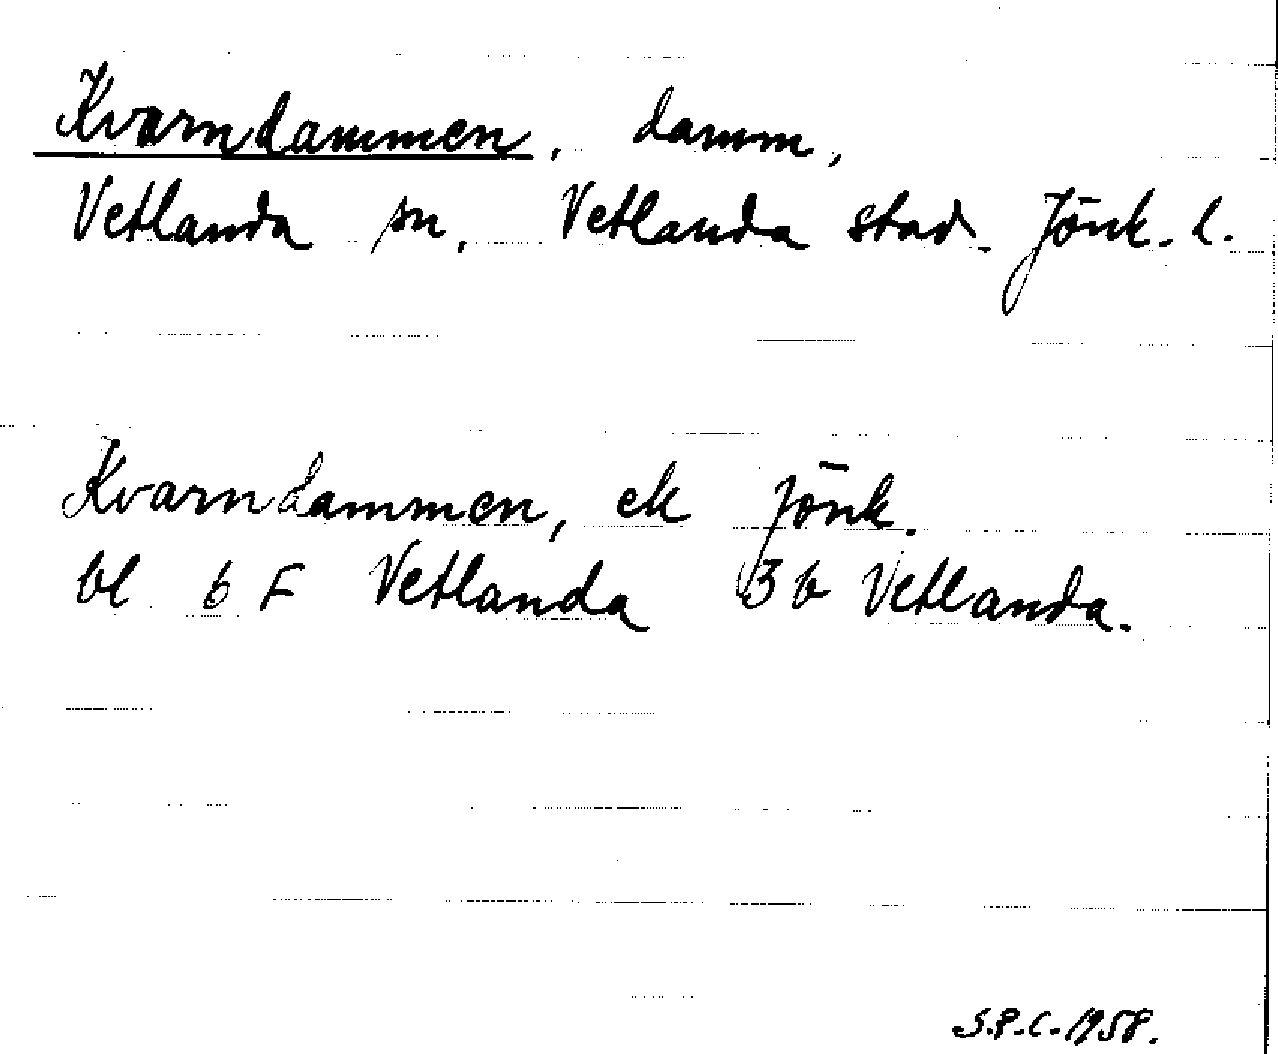 Kvarndammen, damm,
Vetlanda sn, Vetlanda stad. Jönk. l.
Kvarndammen, ek Jönk.
bl 6 F Vetlanda 3 b Vetlanda.
S.P.C. 1958.